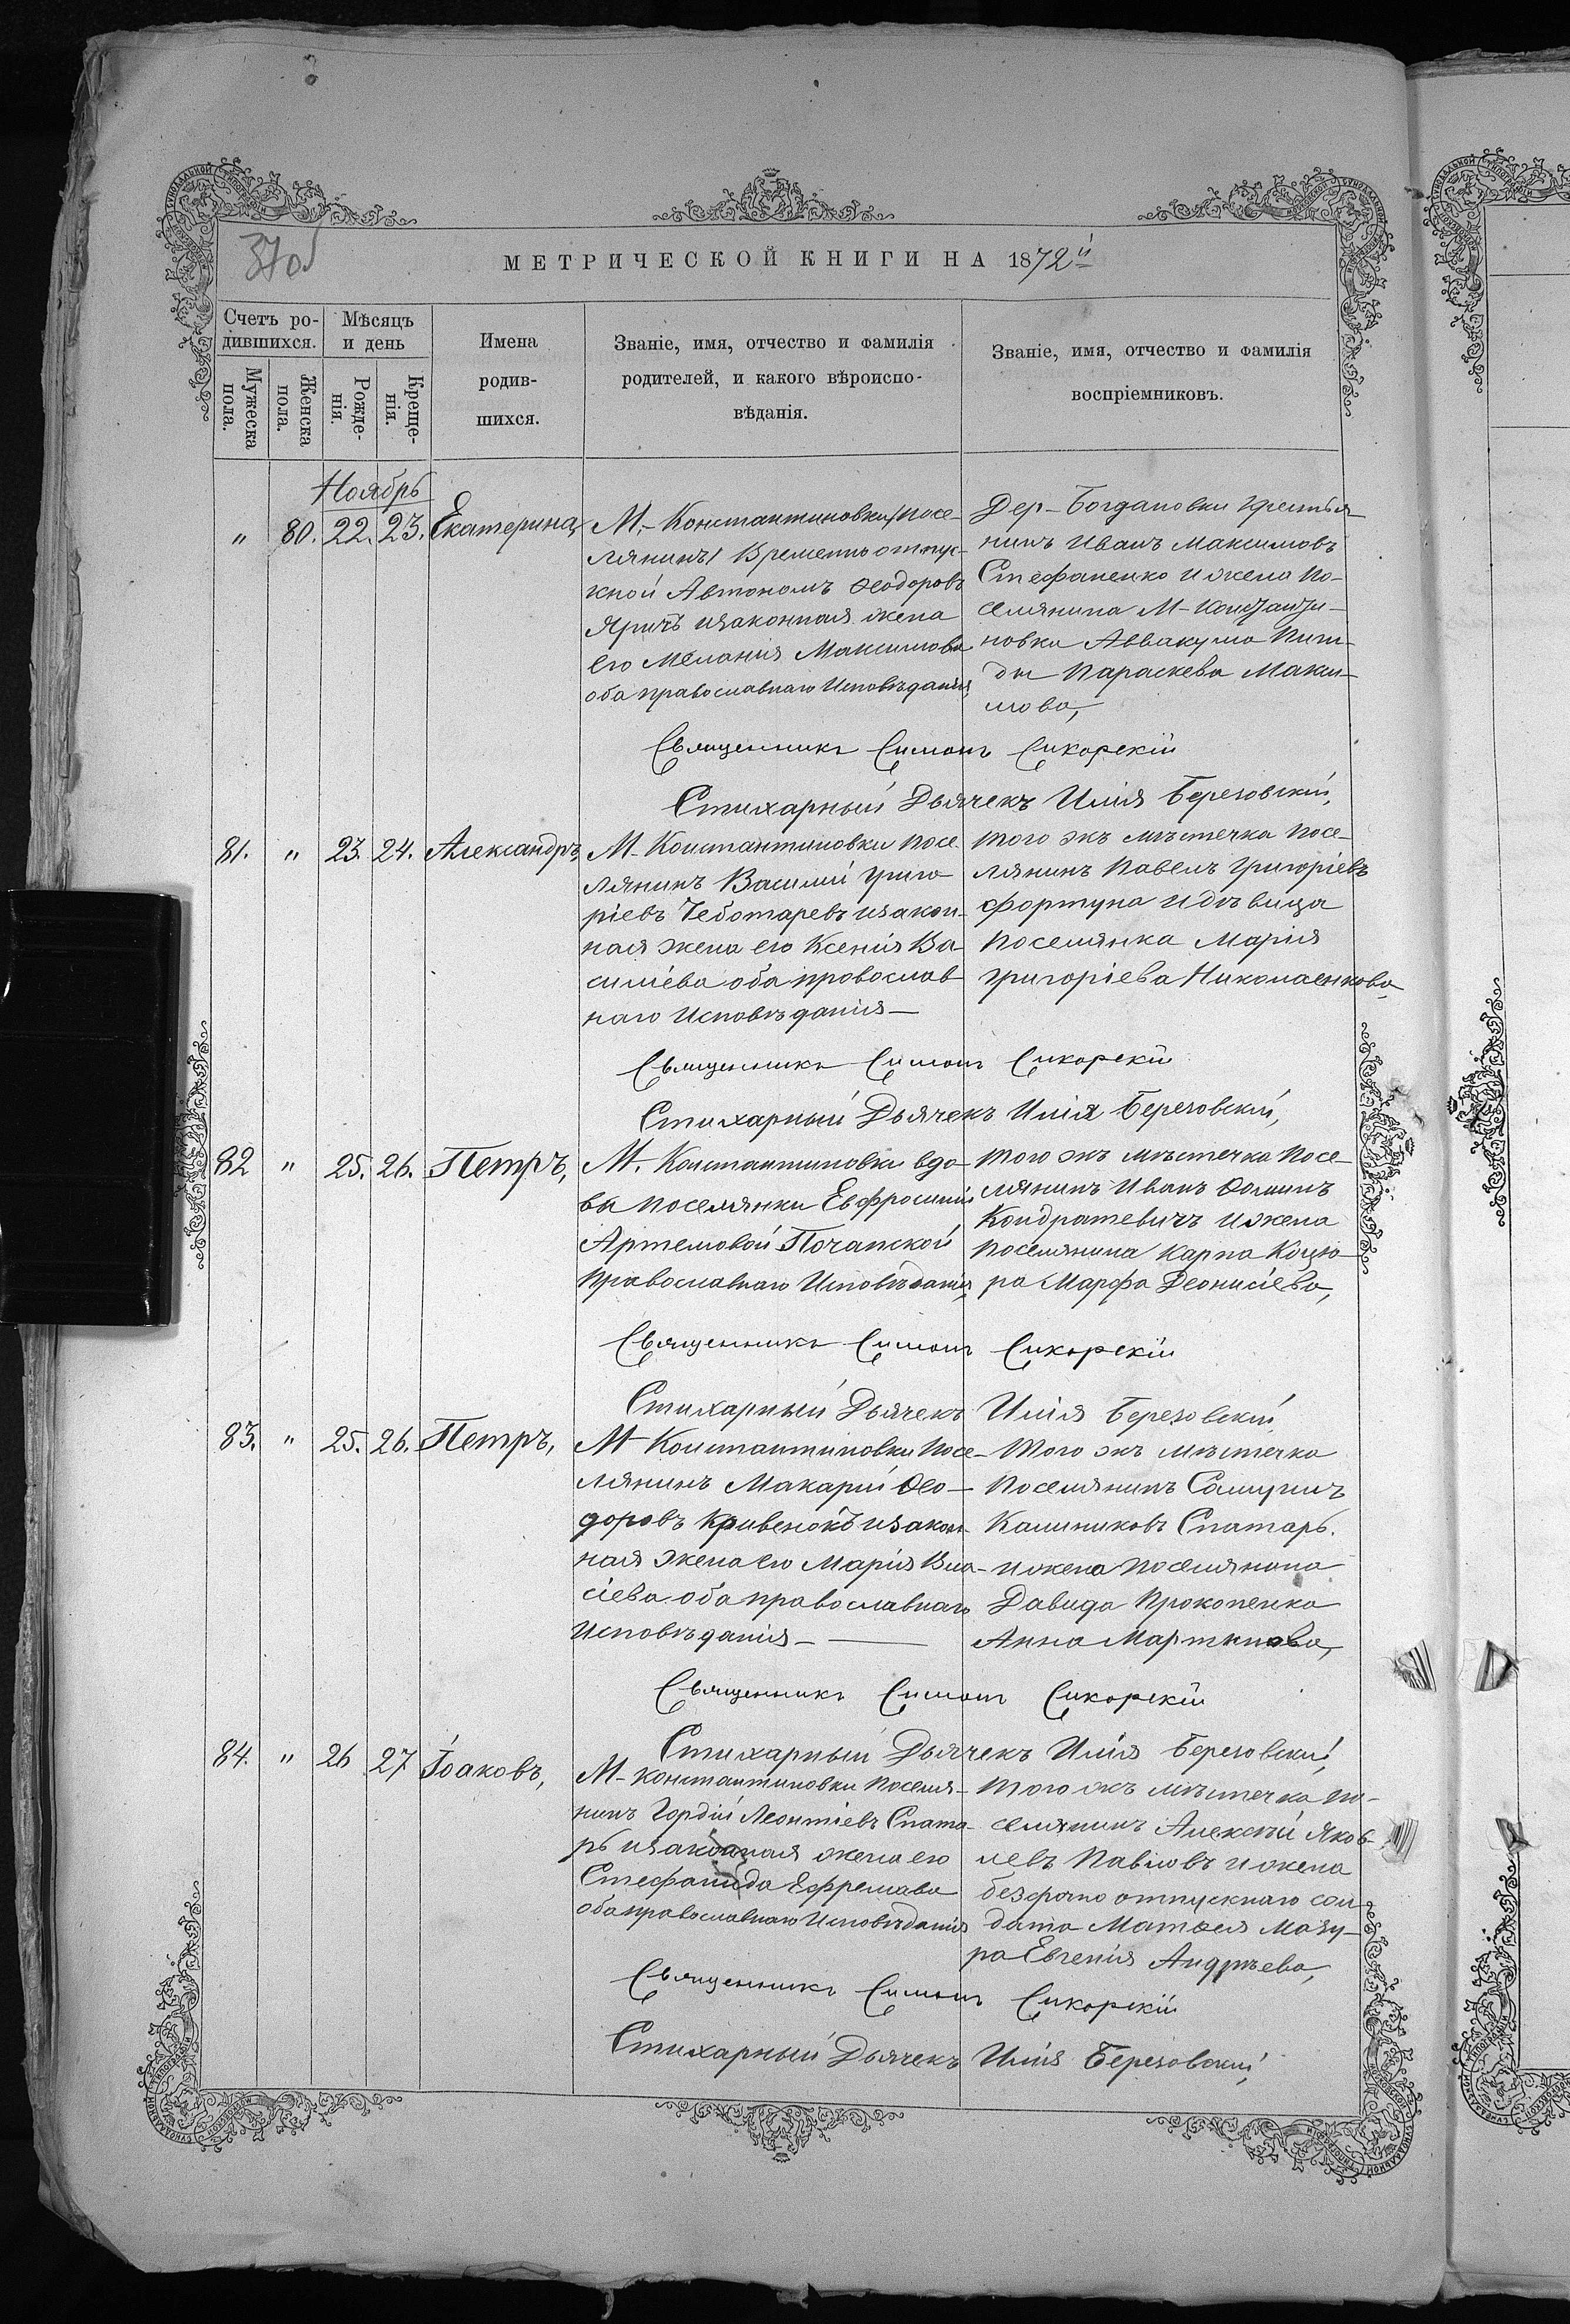 370б
МЕТРИЧЕСКОЙ КНИГИ НА 1872й
Счетъ ро-
дившихся.
Мѣсяцъ
и день
Мужеска
пола.
Женска
пола.
Рожде-
нія.
Креще-
нія.
Имена
родив-
шихся.
Званіе, имя, отчество и фамилія
родителей, и какого вѣроиспо-
вѣданія.
Званіе, имя, отчество и фамилія
воспріемниковъ.
Ноябрь
" 80. 22. 23. Екатерина,
М.- Константиновки, посе-
лянинъ, Временно отпус-
кной Автономъ Ѳеодоровъ
Яричъ изаконная жена
его Меланія Максимова
оба православнаго Исповѣданія,
Дер- Богдановки крестья-
нинъ Иванъ Максимовъ
Стефаненко и жена по-
селянина М- Константи-
новки Аввакума Пиги-
ды Параскева Макси-
мова,
Священникъ Симонъ Сикорскій
Стихарный Дьячекъ Илія Березовскій,
81. " 23. 24. Александръ,
М- Константиновки посе
лянинъ Василій Григо-
ріевъ Чеботаревъ изакон-
ная жена его Ксенія Ва-
силіева оба православ-
наго Исповѣданія-
того жъ мѣстечка посе-
лянинъ Павелъ Григоріевъ
Фортуна и дѣвица
поселянка Марія
Григоріева Николаенкова,
Священникъ Симонъ Сикорскій
Стихарный Дьячекъ Илія Березовскій,
82 " 25. 26. Петръ,
М. Константиновки вдо-
вы поселянки Евфросиніи
Артемовой Почапской
Православнаго Исповѣданія,
того жъ мѣстечка посе-
лянинъ Иванъ Ѳоминъ
Кондратевичъ и жена
поселянина Карпа Коцю-
ра Марфа Деонисіева,
Священникъ Симонъ Сикорскій
Стихарный Дьячекъ Илія Березовскій
83. " 25. 26. Петръ,
М- Константиновки посе-
лянинъ Макарій Ѳео-
доровъ Кривенокъ изакон-
ная жена его Марія Вла-
сіева оба православнаго
Исповѣданія-
Того жъ мѣстечка
поселянинъ Самуилъ
Калиниковъ Спатарь.
и жена поселянина
Давида Прокопенка
Анна Мартинова,
Священникъ Симонъ Сикорскій
Стихарный Дьячекъ Илія Березовскій,
84. " 26 27 Іоаковъ,
М- Константиновки поселя-
нинъ Гордій Леонтіевъ Спата-
рь изаконная жена его
Стефанида Ефремова
оба православнаго Исповѣданія
того жъ мѣстечка по-
селянинъ Алексѣй Яков-
левъ Павловъ и жена
безсрочно отпускнаго сол
дата Матвея Мазу-
ра Евгенія Андрѣева,
Священникъ Симонъ Сикорскій
Стихарный Дьячекъ Илія Березовскій,